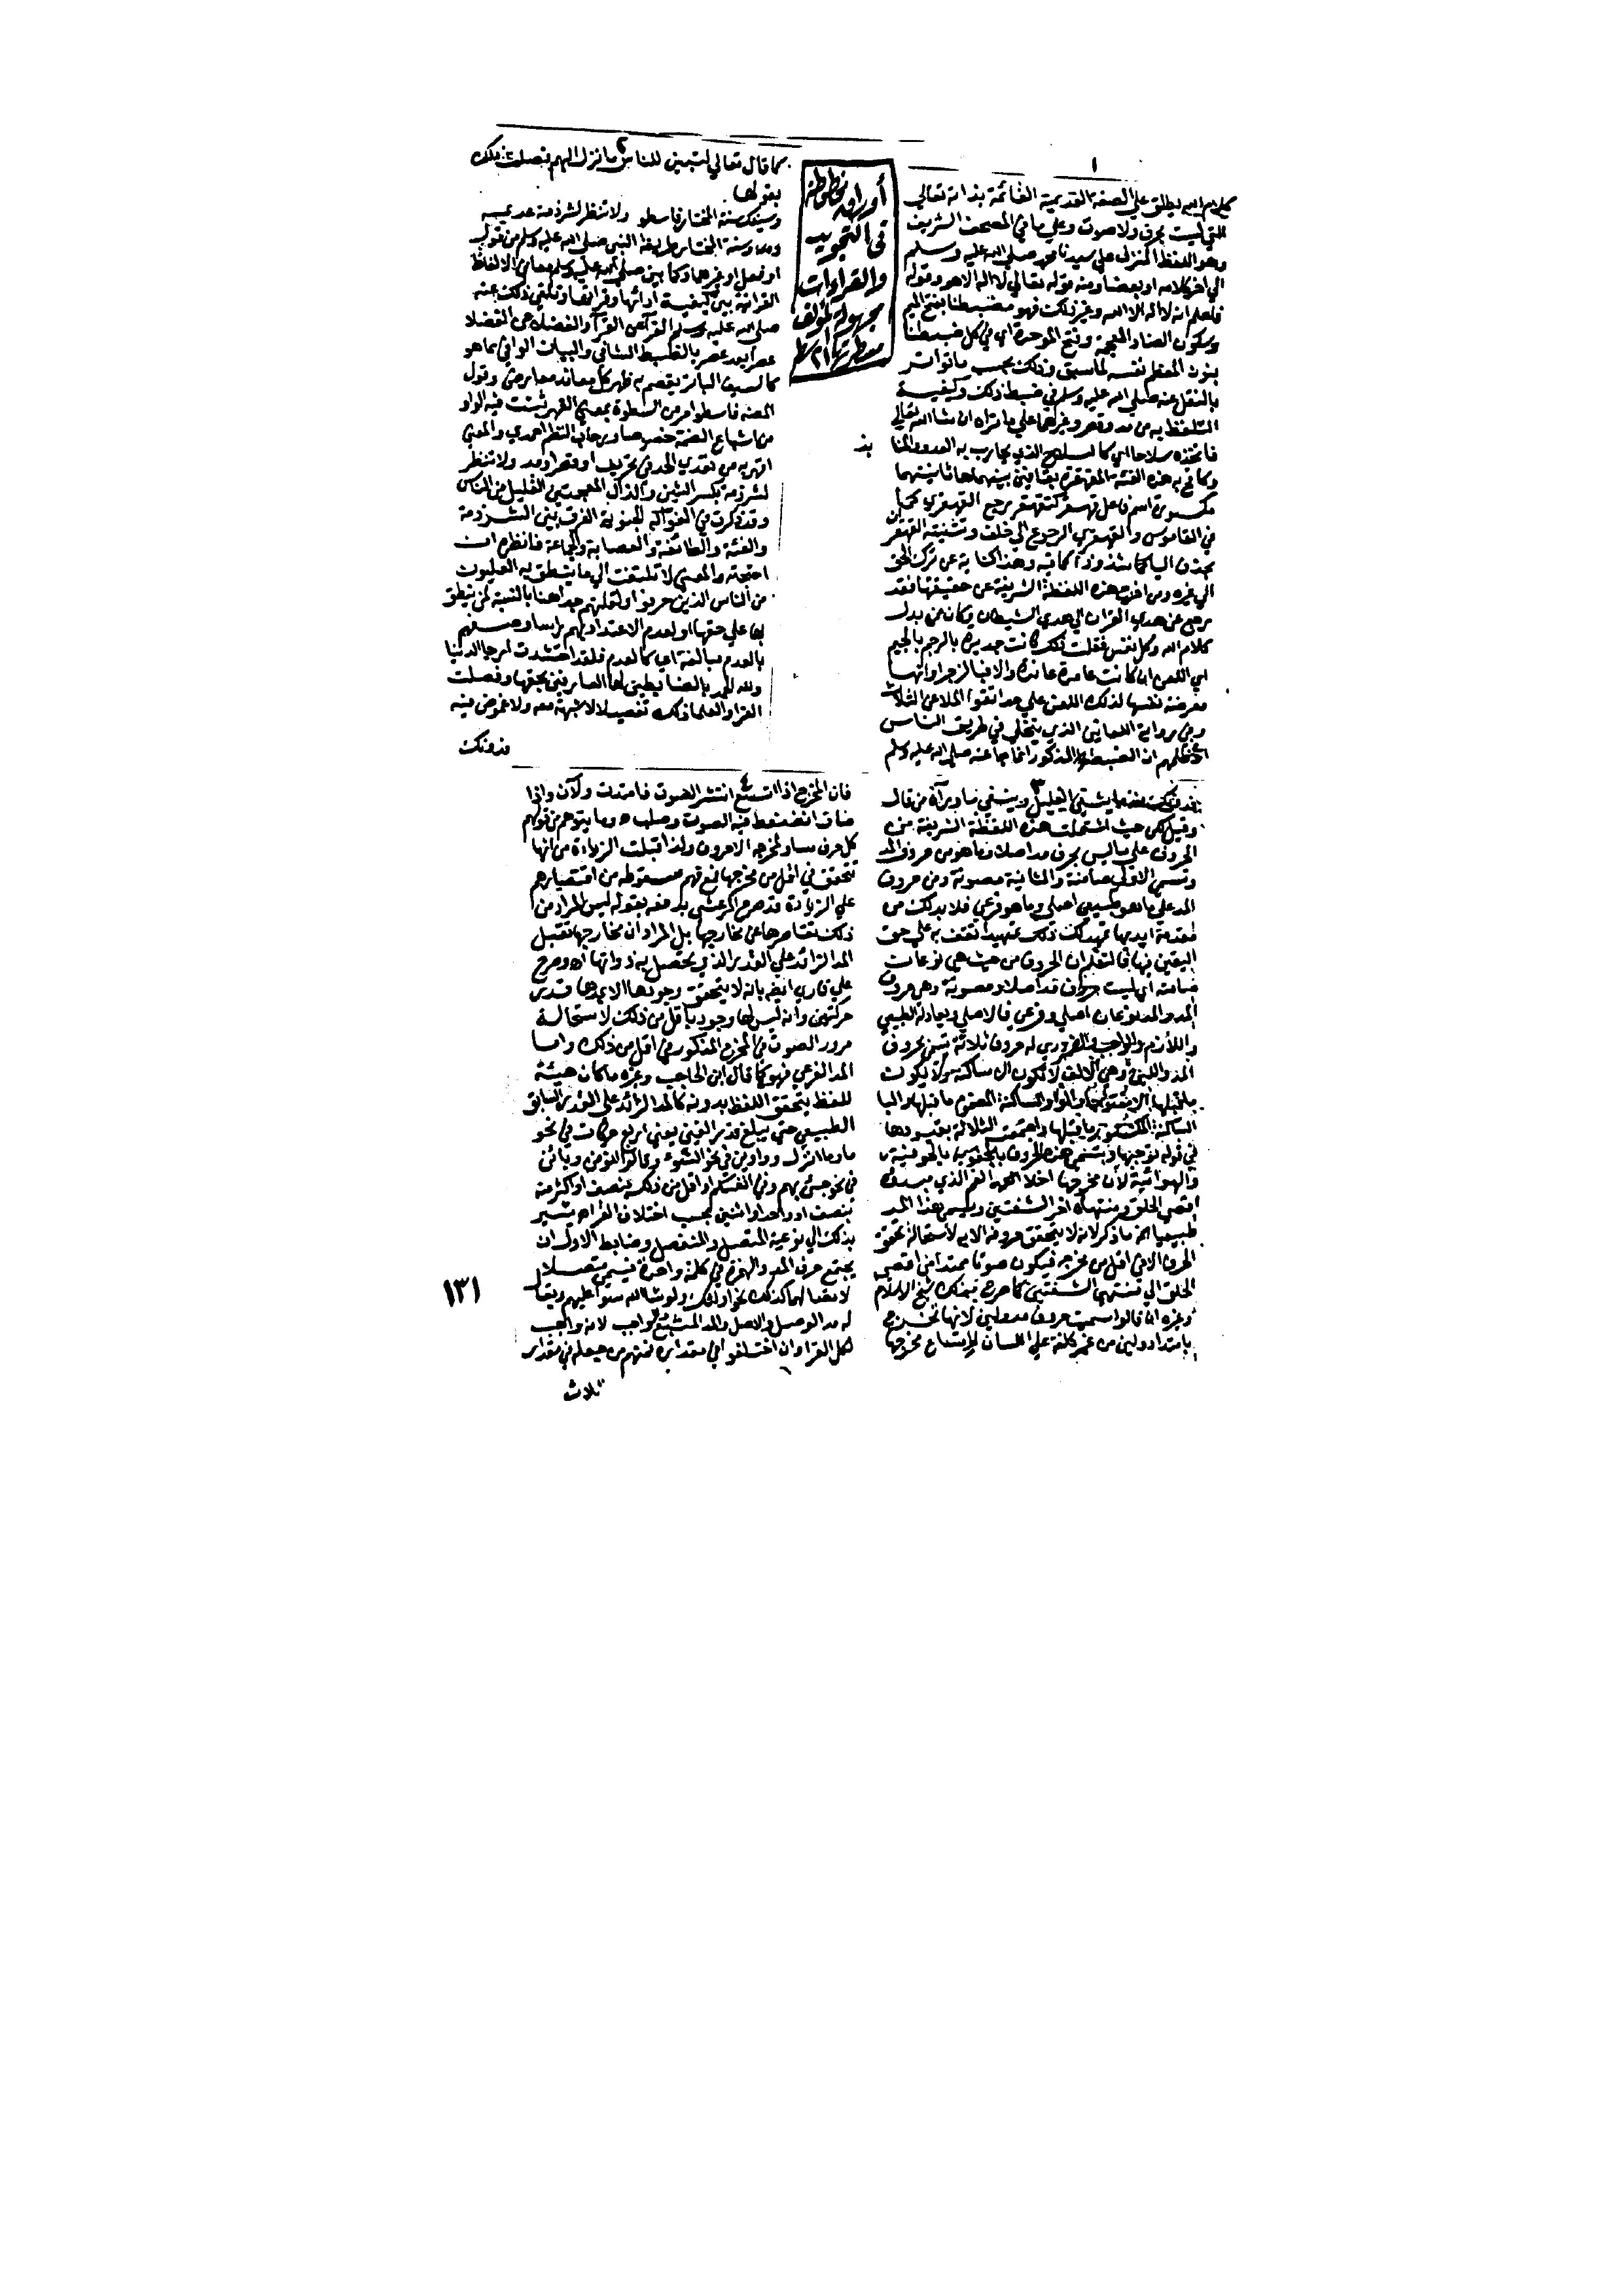 ١
كلام الله يطلق علي الصفة القديمة القائمة بذاته تعالي
التي ليست بحرف ولا صوت وعلي ما في المصحف الشريف
وهو اللفظ المنزل علي سيدنا محمد صلي الله عليه وسلم
الي اخر كلامه او بعضا ومنه قوله تعالي لا اله الا هو وقوله
فاعلم انه لا اله الا الله وغير ذلك فهو مضبطنا بفتح الميم
وسكون الضاد المعجمة وفتح الموحدة اي في كل ضبطنا
بنون المعظم نفسه لما سبق وذلك بحسب ما تواتر
بالنقل عنه صلي الله عليه وسلم في ضبط ذلك وكيفية
التلفظ به من مد وقصر وغيرهما علي ما تراه ان شا الله تعالي
فاتخذه سلاحا اي كالسلاح الذي يحارب به العدو
وكافح به هذه الفئة المقهقرة بقافين بينهما ها ثانيتهما
مكسورة اسم فاعل قهقر كتقهقر رجع القهقري كما
في القاموس والقهقري الرجوع الي خلف وتثنيته القهقر
بحذف اليا كما شذوذا كما فيه وهذا كناية عن ترك الحق
الي غيره ومن اخرج هذه اللفظة الشريفة عن حقيقتها فقد
رجع عن هدي القران الي هدي الشيطان وكان ممن بدل
كلام الله وكل نفس فعلت ذلك كانت جديرة بالرجم بالجيم
اي اللعن ان كانت عامدة عاندة والا فبالزجر وانها
معرضة نفسها لذلك اللعن علي حد اتقوا الملاعن الثلاث
وفي رواية اللعانين الذي يتخلي في طريق الناس
او ظلهم ان الضبط المذكور انما جا عنه صلي الله عليه وسلم
أوراق مخطوطة
في التجويد
والقراءات
مجهولة المؤلف
مسطرتها ٢١ سطرا
٢
كما قال تعالي لتبين للناس ما نزل اليهم فصلت ذلك
بقولها
وسيفك سنة المختار فاسطو ولا تنظر لشرذمة عديمه
وسنة المختار طريقة النبي صلي الله عليه وسلم من قول
او فعل او غيرهما وكما بين صلي الله عليه وسلم معاني الالفاظ
القرانية بين كيفية ادائها وقرائتها وتلقي ذلك عنه
صلي الله عليه وسلم القرآ عن القرآ والفضلا عن الفضلا
عصرا بعد عصر بالضبط الشافي والبيان الوافي بما هو
كالسيف الباتر يقصم به ظهر كل معاند معارض وقول
المصنف فاسطو امر من السطوة بمعني القهر ثبتت فيه الواو
من اشباع الضمة خصوصا ورجاله النظم اهدي والمعني
اقهر به من تعدي الحد في تحريف او قصر او مد ولا تنظر
لشرذمة بكسر الشين والذال المعجمتين القليل من الناس
وقد ذكرت في الفواكه الجنوية الفرق بين الشرذمة
والفئة والطائفة والعصابة والجماعة فانظره ان
احتجته والمعني لا تلتفت الي ما ينطق به القليلون
من الناس الذين حرفوا ولقلتهم جدا هنا بالنسبة لمن ينطق
بها علي حقها او لعدم الاعتداد بهم راسا وصفهم
بالعدم مبالغة اي كالعدم فلقد احتشدت ارجا الدنيا
ولله الحمد بالضابطين لها العارفين بحقها وفصلت
القرا والعلما ذلك تفصيلا لا شبهة معه ولا غموض فيه
فدونك
٣
فدونك منه ما يشتفي العليل ويشفي بما ورآه من قال
وقيل لكن حيث اشتملت هذه اللفظة الشريفة من
الحروف علي ما ليس بحرف مد اصلا وما هو من حروف المد
وتسمي الاولي صامتة والثانية مصوتة ومن حروف
المد علي ما هو طبيعي اصلي وما هو فرعي فلا بد لك من
مقدمة ابديها تمهد لك ذلك تمهيدا تقف به علي حق
اليقين فيها فاعلم ان الحروف من حيث هي نوعان
صامتة اي ليست حروف مد اصلا ومصوتة وهي حروف
المد والمد نوعان اصلي وفرعي فالاصلي ويقال له الطبيعي
واللازم والواجب والضروري له حروف ثلاثة تسمي بحروف
المد واللين وهي الالف لا تكون الا ساكنة ولا يكون
ما قبلها الا مفتوحا والواو الساكنة المضموم ما قبلها واليا
الساكنة المكسور ما قبلها واجتمعت الثلاثة بقيودها
في قوله نوحيها وتسمي هذه الحروف بالجوفية
والهوائية لان مخرجها اخلا الفم الذي مبدؤه
اقصي الحلق ومنتهاه اخر الشفتين ويسمي هذا المد
طبيعيا الخ ما ذكر لانه لا يتحقق حروفه الا به لاستحالة تحقق
الحرف الا في اقل من مخرجه فيكون صوتا ممتدا من اقصي
الحلق الي منتهي الشفتين كما صرح بذلك شيخ الاسلام
وغيره انما قالوا سميت حروف مد ولين لانها تخرج
بامتداد ولين من غير كلفة علي اللسان لاتساع مخرجها
٤
فان المخرج اذا اتسع انتشر الصوت فامتدت ولان واذا
ضاق انضغط فيه الصوت وصلب اه وما يتوهم من قولهم
كل حرف مساو لمخرجه الا حروف ولذا قبلت الزيادة من انها
تتحقق في اقل من مخرجها فهم سقوطه من اقتصارهم
علي الزيادة قد صرح المرعشي بدفعه بقوله ليس المراد من
ذلك تقاصرها عن مخارجها بل المراد ان مخارجها تقبل
المد الزائد علي القدر الذي يحصل به ذواتها اه وصرح
علي قاري ايضا بانه لا يتحقق وجودها الا بمدها قدر
حركتين وانه ليس لها وجود باقل من ذلك لاستحالة
مرور الصوت في المخرج المذكور في اقل من ذلك واما
المد الفرعي فهو كما قال ابن الحاجب وغيره ما كان هيئة
للفظ يتحقق اللفظ بدونه كالمد الزائد علي القدر السابق
الطبيعي حتي يبلغ قدر الفين يعني اربع حركات في نحو
ما وما انزل وواوين في نحو السوء وقالوا انؤمن ويائين
في نحو جيئ بهم وفي انفسكم او اقل من ذلك بنصف او اكثر منه
بنصف او واحد او اثنين بحسب اختلاف القراه تشير
بذلك الي نوعية المتصل والمنفصل وضابط الاول ان
يجتمع حرف المد والهمزة في كلمة واحدة فيسمي متصلا
لاتصالهما كذلك نحو اولئك ولو شا الله سوا عليهم ويقال
له مد الوصل والاصل والمد المشبع والواجب لانه واجب
لكل القرا وان اختلفوا في مقداره فمنهم من جعله في مقدار
ثلاث
١٣١